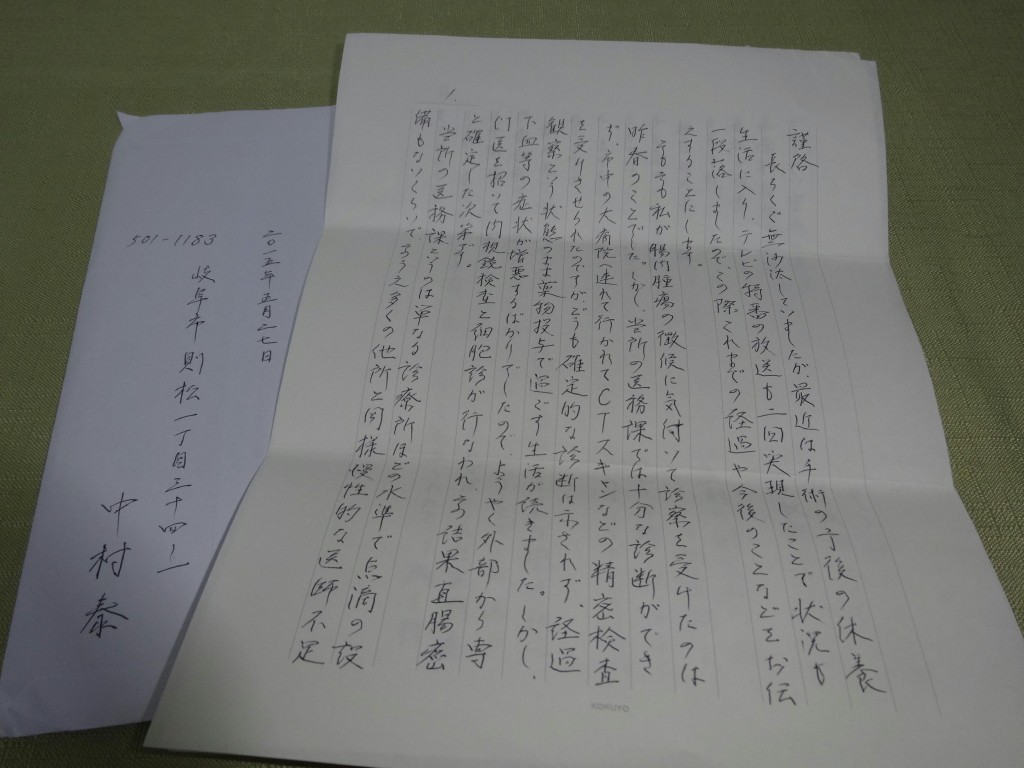 1.
謹啓
長らくご無沙汰してい ましたが最近は手術の予後の休養
生活に入り、テレビの特番の放送も二回実現したことで状況も
一段落しましたので、この際これまでの経過や今後のことなどをお伝
えすることにします。
そもそも私が腸内腫瘍の徴候に気付いて診察を受けたのは
昨春のことでした。しかし、当所の医務課では十分な診断ができ
ず、市中の大病院へ連れて行かれてCTスキャンなどの精密検査
を受けさせられたのですがどうも確定的な診断は示されず、経過
観察という状態のまま薬物投与で過ごす生活が続きました。しかし、
下血等の症状が増悪するばかりでしたので、ようやく外部から専
門医を招いて内視鏡検査と細胞診が行なわれ、その結果直腸癌
と確定した次第です。
当所の医務課というのは単なる診療所ほどの水準で点滴の設
備もないくらいで そのうえ多くの他所と同様慢性的な医師不足
KOKUYO
二〇二五年五月二七日
501-1183
岐阜市則松一丁目三十四ー一
中村泰